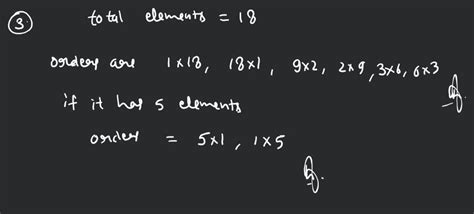 ③ total elements = 18
orders are 1×18, 18×1, 9×2, 2×9, 3×6, 6×3
if it has 5 elements
order = 5×1, 1×5